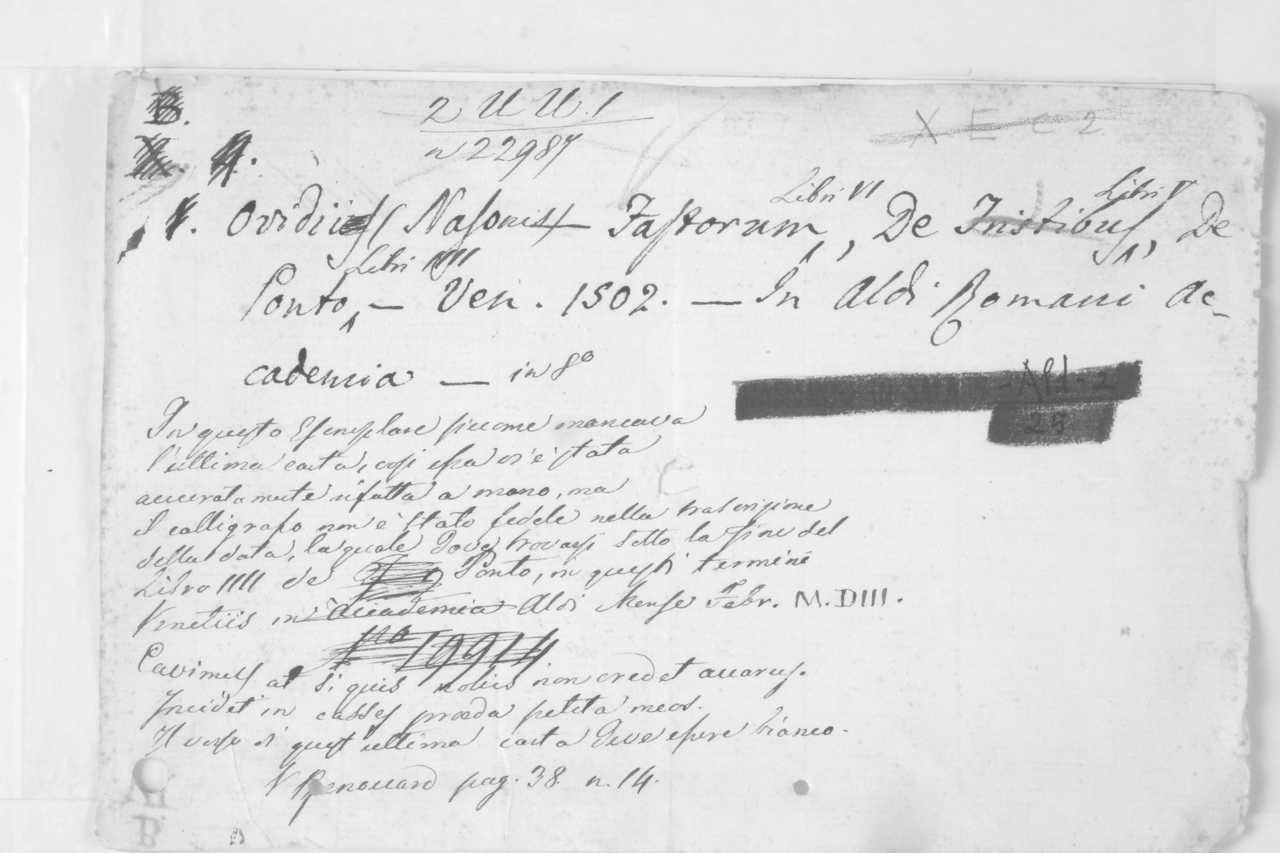 2 U U. 1
X E C 2
n 22987
4.
Libri VI Libri V
Ovidii Nasonis — Fastorum, De Tristibus, De
Libri IIII
Ponto, — Ven. 1502. — In Aldi Romani Ac-
cademia — in 8º
Ald - 2
25
In questo Esemplare siccome mancava
l'ultima carta, così essa vi è stata
accuratamente rifatta a mano, ma
il calligrafo non è stato fedele nella trascrizione
della data, la quale deve trovarsi sotto la fine del
Libro IIII de Ponto, in questi termini
Venetiis in Accademia Aldi Mense Febr. M.DIII.
no 19914
Cavimus at si quis nobis non credet avarus.
Incidet in casses praeda petita meos.
Il verso di quest'ultima carta deve essere bianco.
V Renouard pag. 38 n. 14.
B